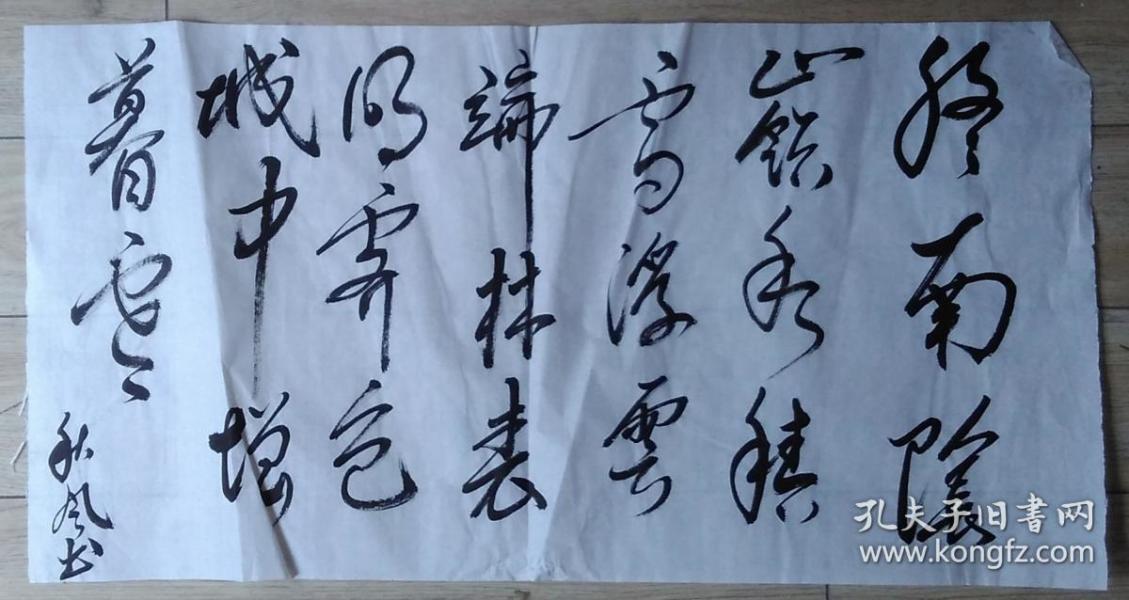 終南陰
嶺秀積
雪浮雲
端林表
明霽色
城中增
暮寒
秋風书
孔夫子旧書网
www.kongfz.com